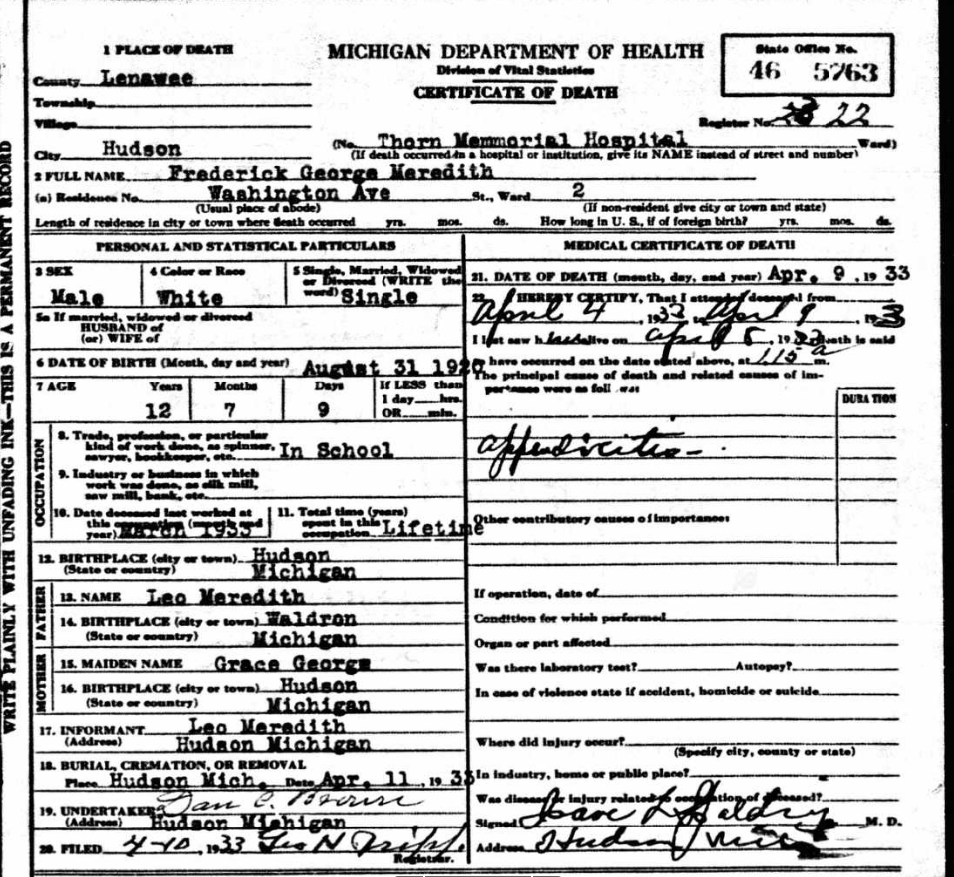 WRITE PLAINLY WITH UNFADING INK—THIS IS A PERMANENT RECORD
1 PLACE OF DEATH
MICHIGAN DEPARTMENT OF HEALTH
Division of Vital Statistics
CERTIFICATE OF DEATH
State Office No.
46 5763
County Lenawee
Township
Village
Register No. 22
City Hudson (No. Thorn Memmorial Hospital Ward)
(If death occurred in a hospital or institution, give its NAME instead of street and number)
2 FULL NAME Frederick George Meredith
(a) Residence No. Washington Ave St., Ward 2
(Usual place of abode) (If non-resident give city or town and state)
Length of residence in city or town where death occurred yrs. mos. ds. How long in U. S., if of foreign birth? yrs. mos. ds.
PERSONAL AND STATISTICAL PARTICULARS
3 SEX
Male
4 Color or Race
White
5 Single, Married, Widowed
or Divorced (WRITE the
word) Single
5a If married, widowed or divorced
HUSBAND of
(or) WIFE of
6 DATE OF BIRTH (Month, day and year) August 31 1920
7 AGE Years Months Days If LESS than
1 day hrs.
OR min.
12 7 9
OCCUPATION
8. Trade, profession, or particular
kind of work done, as spinner,
sawyer, bookkeeper, etc. In School
9. Industry or business in which
work was done, as silk mill,
saw mill, bank, etc.
10. Date deceased last worked at
this occupation (month and
year) March 1933
11. Total time (years)
spent in this
occupation Lifetime
12. BIRTHPLACE (city or town) Hudson
(State or country) Michigan
FATHER
13. NAME Leo Meredith
14. BIRTHPLACE (city or town) Waldron
(State or country) Michigan
MOTHER
15. MAIDEN NAME Grace George
16. BIRTHPLACE (city or town) Hudson
(State or country) Michigan
17. INFORMANT Leo Meredith
(Address) Hudson Michigan
18. BURIAL, CREMATION, OR REMOVAL
Place Hudson Mich. Date Apr. 11, 1933
19. UNDERTAKER Dan C. Brown
(Address) Hudson Mishigan
20. FILED 4-10, 1933 Geo N Tripp
Registrar.
MEDICAL CERTIFICATE OF DEATH
21. DATE OF DEATH (month, day, and year) Apr. 9, 1933
22. I HEREBY CERTIFY, That I attended deceased from
April 4, 1933 to April 9, 193
I last saw h alive on April 8, 19 death is said
to have occurred on the date stated above, at 115 a m.
The principal cause of death and related causes of im-
portance were as follows:
DURATION
appendicitis
Other contributory causes of importance:
If operation, date of
Condition for which performed
Organ or part affected
Was there laboratory test? Autopsy?
In case of violence state if accident, homicide or suicide
Where did injury occur?
(Specify city, county or state)
In industry, home or public place?
Was disease or injury related to occupation of deceased?
Signed M. D.
Address Hudson Mich